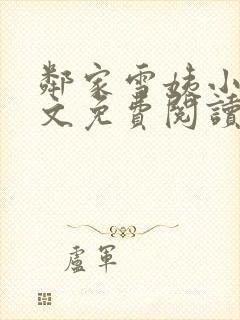 鄰家雪姨小
文免費閱讀
盧軍